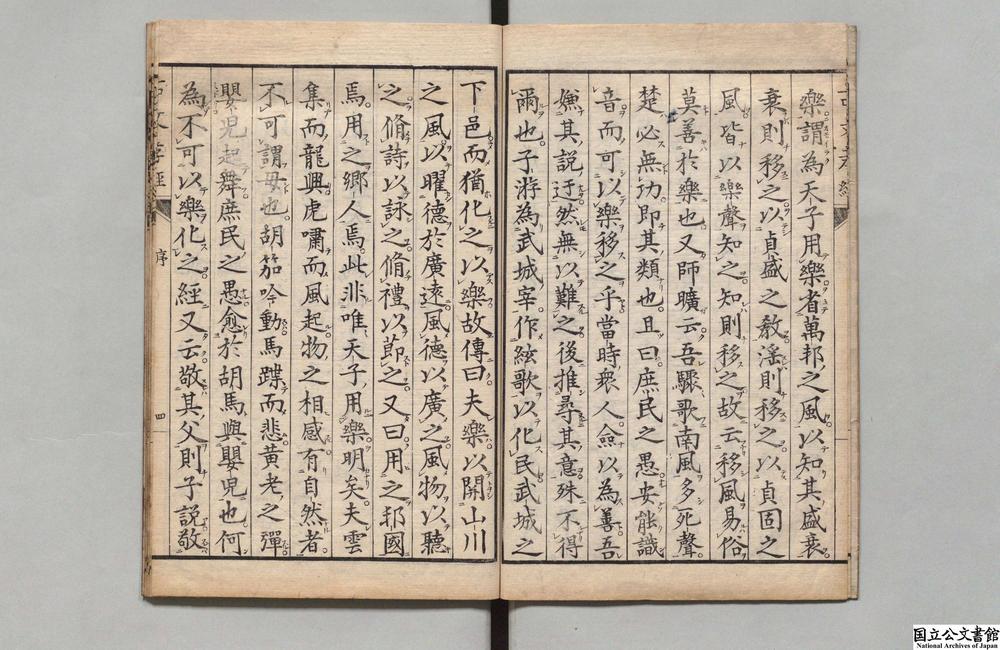 樂謂為天子用樂省萬邦之風以知其盛衰
衰則移之以貞盛之教滛則移之以貞固之
風皆以樂聲知之知則移之故云移風易俗
莫善於樂也又師曠云吾驟歌南風多死聲
楚必無功即其類也且曰庶民之愚安能識
音而可以樂移之乎當時衆人僉以為善吾
嫌其説迂然無以難之後推尋其意殊不得
爾也子游為武城宰作絃歌以化民武城之
下邑而猶化之以樂故傳曰夫樂以開山川
之風以曜德於廣遠風德以廣之風物以聽
之脩詩以詠之脩禮以節之又曰用之邦國
焉用之鄉人焉此非唯天子用樂明矣夫雲
集而龍興虎嘯而風起物之相感有自然者
不可謂毋也胡笳吟動馬蹀而悲黄老之彈
嬰兒起舞庶民之愚愈於胡馬與嬰兒也何
為不可以樂化之經又云敬其父則子説敬
古文孝經
序
四
国立公文書館
National Archives of Japan